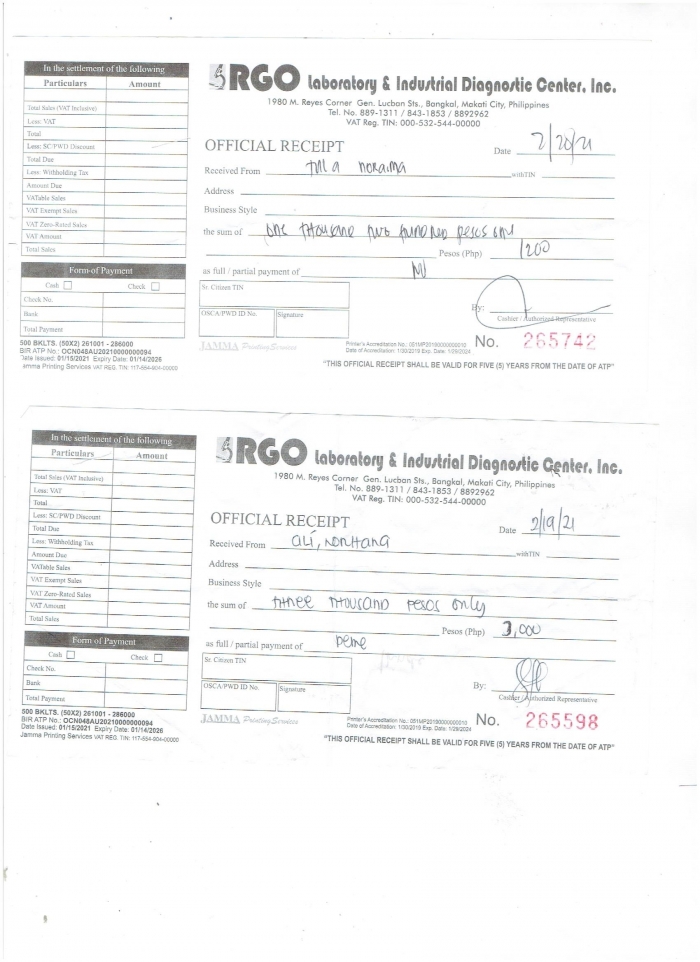 In the settlement of the following
Particulars Amount
Total Sales (VAT Inclusive)
Less: VAT
Total
Less: SC/PWD Discount
Total Due
Less: Withholding Tax
Amount Due
VATable Sales
VAT Exempt Sales
VAT Zero-Rated Sales
VAT Amount
Total Sales
Form of Payment
Cash Check
Check No.
Bank
Total Payment
500 BKLTS. (50X2) 261001 - 286000
BIR ATP No.: OCN048AU20210000000094
Date Issued: 01/15/2021 Expiry Date: 01/14/2026
Jamma Printing Services VAT REG. TIN: 117-554-904-00000
RGO Laboratory & Industrial Diagnostic Center, Inc.
1980 M. Reyes Corner Gen. Lucban Sts., Bangkal, Makati City, Philippines
Tel. No. 889-1311 / 843-1853 / 8892962
VAT Reg. TIN: 000-532-544-00000
OFFICIAL RECEIPT Date 2/20/21
Received From Noraima with TIN
Address
Business Style
the sum of one thousand two hundred pesos only
Pesos (Php) 1200
as full / partial payment of
Sr. Citizen TIN
OSCA/PWD ID No. Signature
By:
Cashier / Authorized Representative
JAMMA Printing Services
Printer's Accreditation No.: 051MP20190000000010
Date of Accreditation: 1/30/2019 Exp. Date: 1/29/2024
No. 265742
"THIS OFFICIAL RECEIPT SHALL BE VALID FOR FIVE (5) YEARS FROM THE DATE OF ATP"
In the settlement of the following
Particulars Amount
Total Sales (VAT Inclusive)
Less: VAT
Total
Less: SC/PWD Discount
Total Due
Less: Withholding Tax
Amount Due
VATable Sales
VAT Exempt Sales
VAT Zero-Rated Sales
VAT Amount
Total Sales
Form of Payment
Cash Check
Check No.
Bank
Total Payment
500 BKLTS. (50X2) 261001 - 286000
BIR ATP No.: OCN048AU20210000000094
Date Issued: 01/15/2021 Expiry Date: 01/14/2026
Jamma Printing Services VAT REG. TIN: 117-554-904-00000
RGO Laboratory & Industrial Diagnostic Center, Inc.
1980 M. Reyes Corner Gen. Lucban Sts., Bangkal, Makati City, Philippines
Tel. No. 889-1311 / 843-1853 / 8892962
VAT Reg. TIN: 000-532-544-00000
OFFICIAL RECEIPT Date 2/19/21
Received From Ali, Norhana with TIN
Address
Business Style
the sum of three thousand pesos only
Pesos (Php) 3,000
as full / partial payment of peme
Sr. Citizen TIN
OSCA/PWD ID No. Signature
By:
Cashier / Authorized Representative
JAMMA Printing Services
Printer's Accreditation No.: 051MP20190000000010
Date of Accreditation: 1/30/2019 Exp. Date: 1/29/2024
No. 265598
"THIS OFFICIAL RECEIPT SHALL BE VALID FOR FIVE (5) YEARS FROM THE DATE OF ATP"